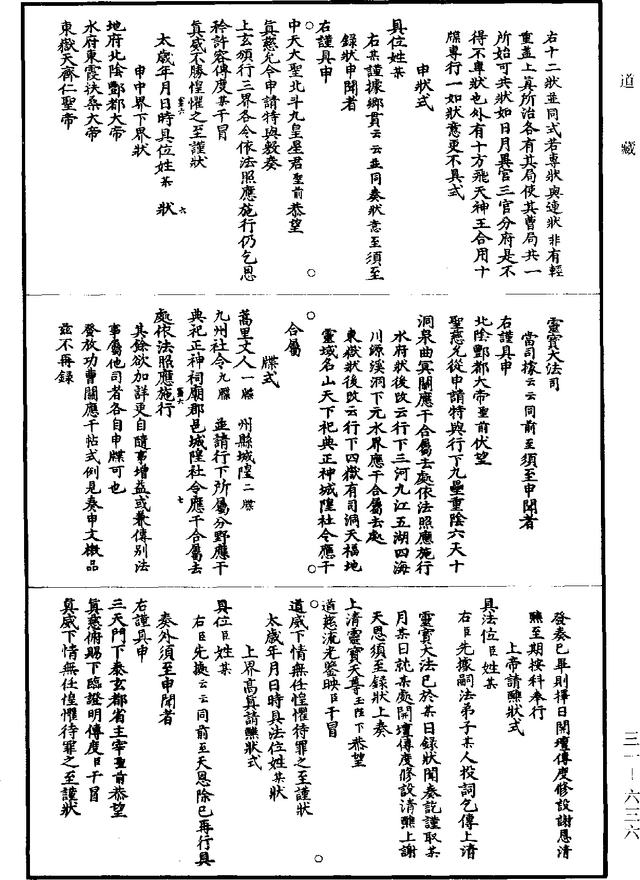 道藏
右十二狀並同式若專狀與連狀非有輕
重蓋上真所治各有其局使其曹局共一
所始可共狀如日月異宮三官分府是不
得不專狀也外有十方飛天神王合用十
牒專行一如狀意更不具式
申狀式
具位姓某
右某謹據鄉貫云云並同奏狀意至須至
錄狀申聞者
右謹具申
中天大聖北斗九皇星君聖前恭望
真慈允令申請特與敷奏
上玄頒行三界各令依法照應施行仍乞恩
衿許容傳度某干冒
真威不勝惶懼之至謹狀
太歲年月日時具位姓某 狀
申中界下界狀
地府北陰酆都大帝
水府東霞扶桑大帝
東嶽天齊仁聖帝
靈寶大法司
當司據云云同前至須至申聞者
右謹具申
北陰酆都大帝聖前伏望
聖慈允從申請特與行下九壘重陰六天十
洞泉曲冥關應干合屬去處依法照應施行
水府狀後改云行下三河九江五湖四海
川源溪洞下元水界應干合屬去處
東嶽狀後改云行下四嶽有司洞天福地
靈域名山天下祀典正神城隍社令應干
合屬
牒式
蒿里丈人一牒 州縣城隍二牒
九州社令九牒 並請行下所屬分野應干
典祀正神祠廟郡邑城隍社令應干合屬去
處依法照應施行
其餘欲加詳更自隨事增益或兼傳別法
事屬他司者各自申牒可也
發放功曹關應干帖式例見奏申文檄品
茲不再錄
發奏已畢則擇日開壇傳度修設謝恩清
醮至期按科奉行
上帝請醮狀式
具法位臣姓某
右臣先據嗣法弟子某人投詞乞傳上清
靈寶大法已於某日錄狀聞奏訖謹取某
月某日就某處開壇傳度修設清醮上謝
天恩須至錄狀上奏
上清靈寶天尊玉陛下恭望
道慈流光鑒映臣干冒
道威下情無任惶懼待罪之至謹狀
太歲年月日時具法位姓某狀
上界高真請醮狀式
具位臣姓某
右臣先據云云同前至天恩除已再行具
奏外須至申聞者
右謹具申
三天門下泰玄都省主宰聖前恭望
真慈俯賜下臨證明傳度臣干冒
真威下情無任惶懼待罪之至謹狀
三一—六三六